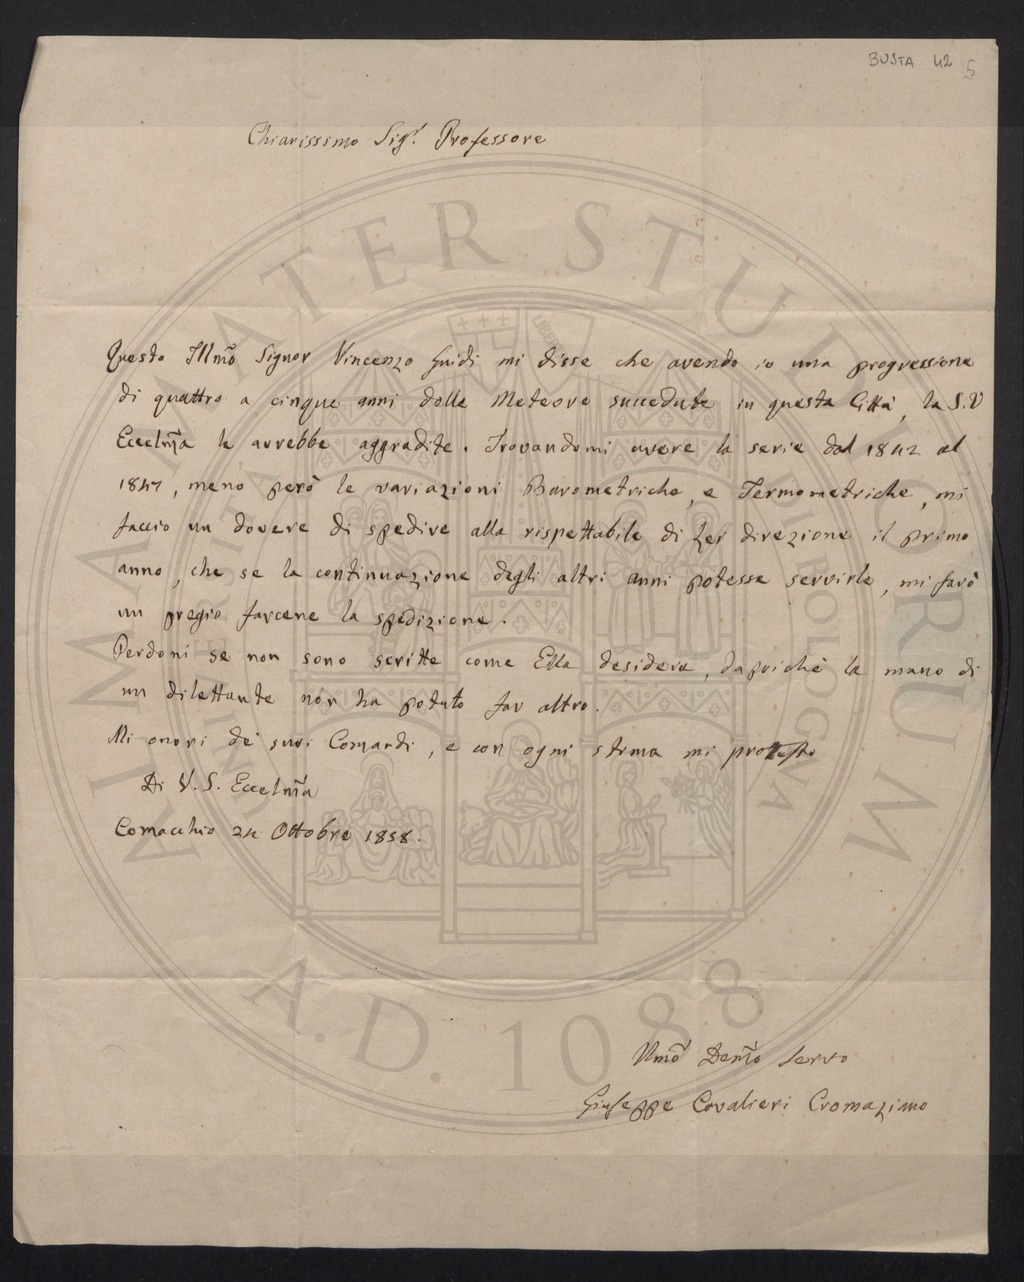 BUSTA 42 5
Chiarissimo Sigr. Professore
Questo Illmo Signor Vincenzo Guidi mi disse che avendo io una progressione
di quattro a cinque anni delle Meteore succedute in questa Città, la S.V
Eccelma le avrebbe aggradite. Trovandomi avere la serie dal 1842 al
1847, meno però le variazioni Barometriche, e Termometriche, mi
faccio un dovere di spedire alla rispettabile di Lei direzione il primo
anno, che se la continuazione degli altri anni potesse servirle, mi farò
un pregio farcene la spedizione.
Perdoni se non sono scritte come Ella desidera, dapoichè la mano di
un dilettante non ha potuto far altro.
Mi onori de' suoi Comandi, e con ogni stima mi protesto
Di V. S. Eccelma
Comacchio 24 Ottobre 1858.
Umo Demo Servo
Giuseppe Cavalieri Cromaziano
ALMA MATER STUDIORUM
A.D. 1088
UNIVERSITÀ DI BOLOGNA
LIBERTAS